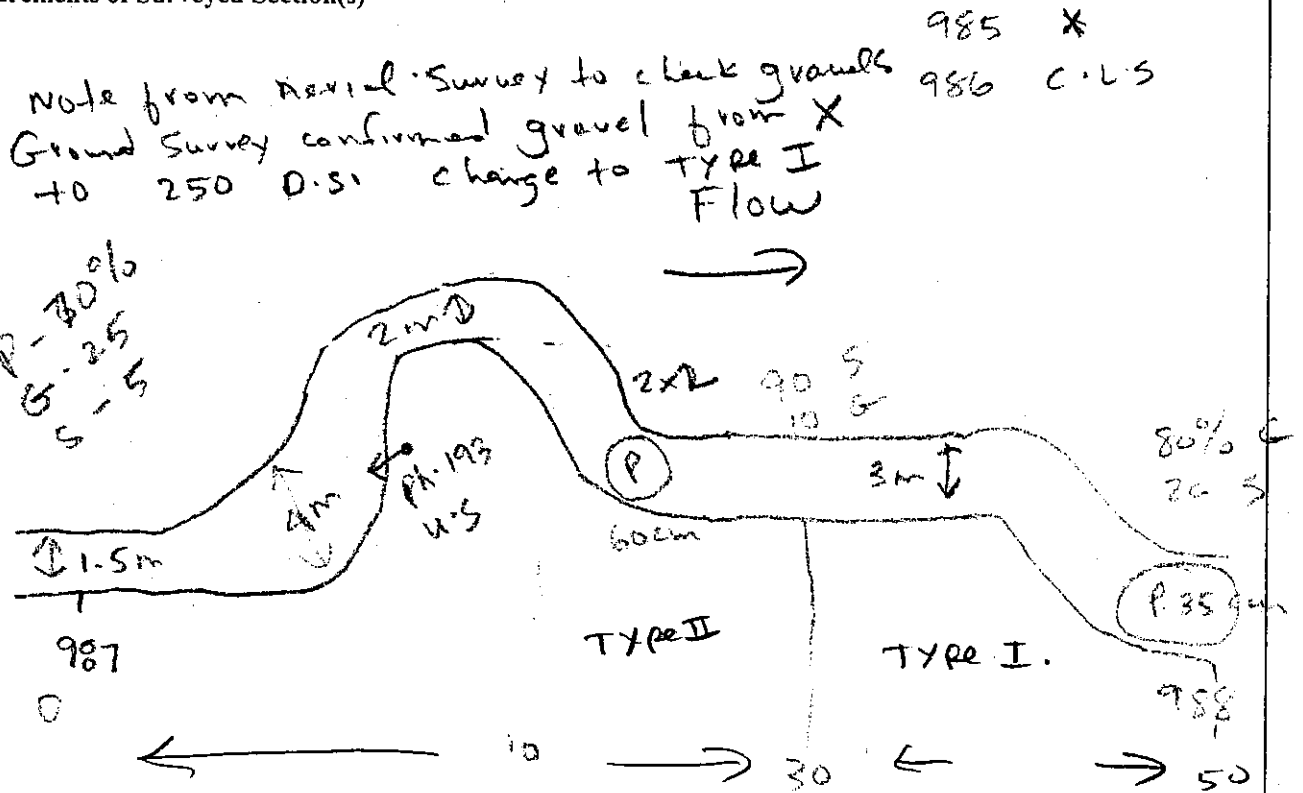 rements of Surveyed Section(s)
985 X
Note from Aerial Survey to check gravels 986 C.L.S
Ground Survey confirmed gravel from X
to 250 D.S. change to Type I
Flow
G - 25
S - 5
2m
2x2
90 S
10 G
80% G
20 S
4m
ph.193
U.S
P
3m
1.5m
60cm
P.35cm
987
Type II
Type I.
988
0
10
30
50